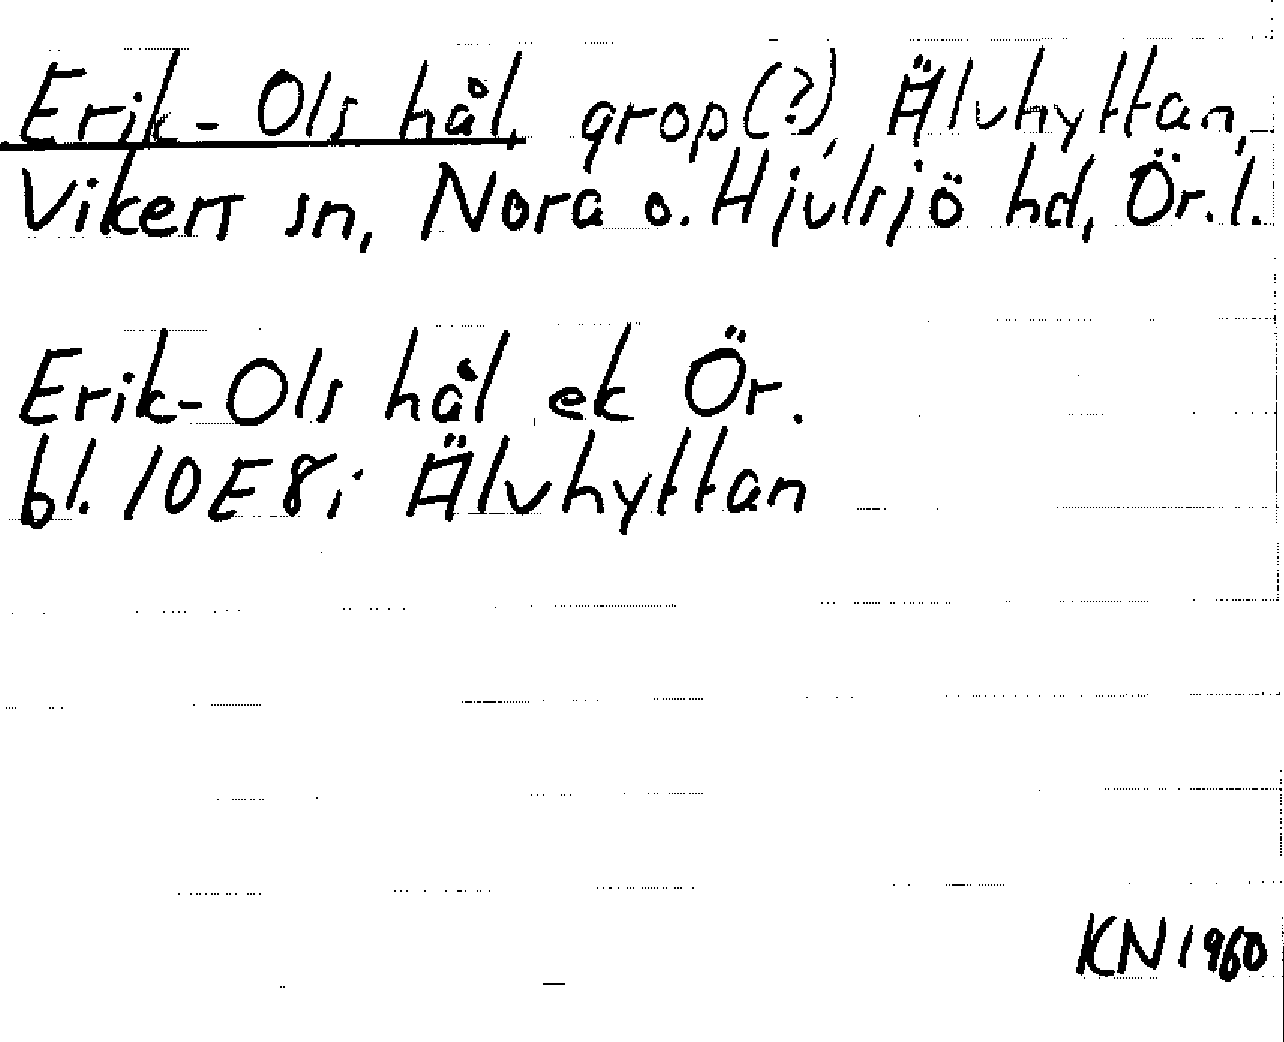 Erik-Ols hål, grop(?), Älvhyttan,
Vikers sn, Nora o. Hjulsjö hd, Ör. l.
Erik-Ols hål ek Ör.
bl. 10E8i Älvhyttan
KN 1960